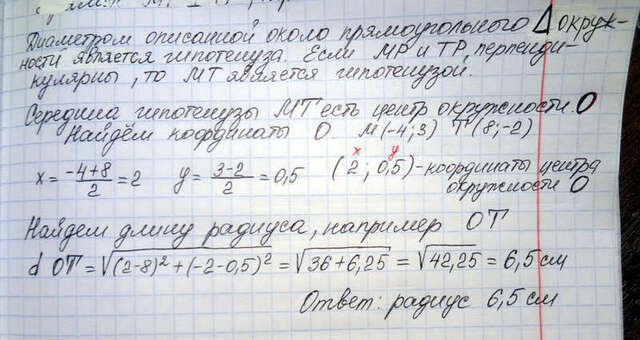 Диаметром описанной около прямоугольного Δ окруж-
ности является гипотенуза. Если MP и TP, перпенди-
кулярны, то MT является гипотенузой.
Середина гипотенузы MT есть центр окружности. O
Найдём координаты O. M(-4;3) T(8;-2)
x = (-4+8)/2 = 2 y = (3-2)/2 = 0,5 (2; 0,5) - координаты центра
x y
окружности O
Найдем длину радиуса, например OT
d OT = √((2-8)² + (-2-0,5)²) = √(36+6,25) = √42,25 = 6,5 см
Ответ: радиус 6,5 см